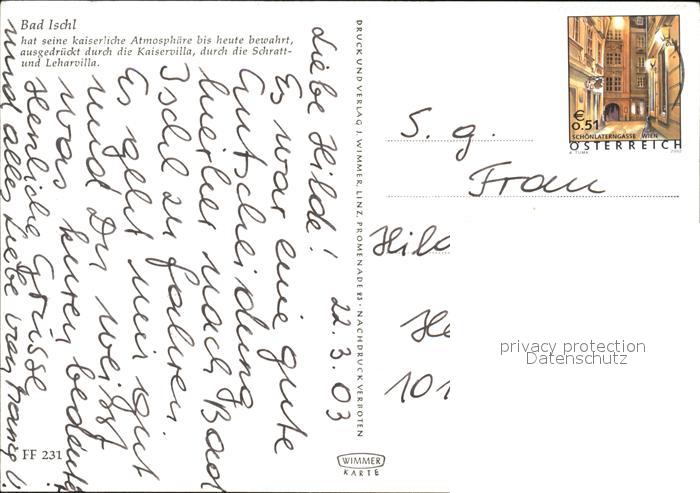 Bad Ischl
hat seine kaiserliche Atmosphäre bis heute bewahrt,
ausgedrückt durch die Kaiservilla, durch die Schratt-
und Leharvilla.
22.3.03
Liebe Hilde!
Es war eine gute
Entscheidung
hierher nach Bad
Ischl zu fahren.
Es geht mir gut
und Du weisst
was kuren bedeutet
Herzliche Grüsse
und alles Liebe von
FF 231
DRUCK UND VERLAG J. WIMMER, LINZ, PROMENADE 23 · NACHDRUCK VERBOTEN
WIMMER
KARTE
€
0.51
SCHÖNLATERNGASSE WIEN
ÖSTERREICH
2002
S. g.
Frau
Hild
He
101
privacy protection
Datenschutz